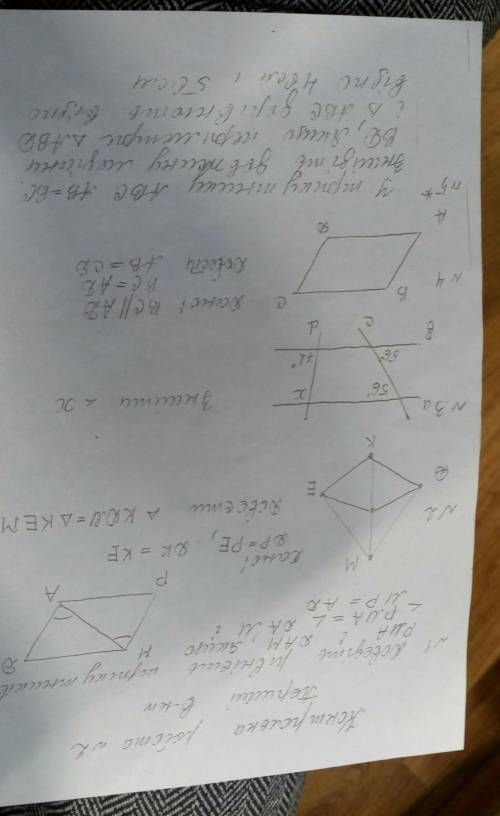 Контрольна робота №2
Перший В-нт
№1 Доведіть рівність трикутників
РМА і DAM, якщо
∠РМА = ∠DA, M і
МР = AD
D
A
M
P
№2
Дано:
DP=PE, DK=KE
Довести △KDM=△KEM
M
D
E
K
№3
a
B
c
d
56°
56°
72°
x
Знайти ∠x
№4
Дано: BC∥AD
BC=AD
Довести AB=CD
B
C
A
D
№5*
У трикутнику ABC AB=BC.
Знайдіть довжину медіани
BD, якщо периметри △ABD
і △ABC дорівнюють відпо
відно 40см і 50см